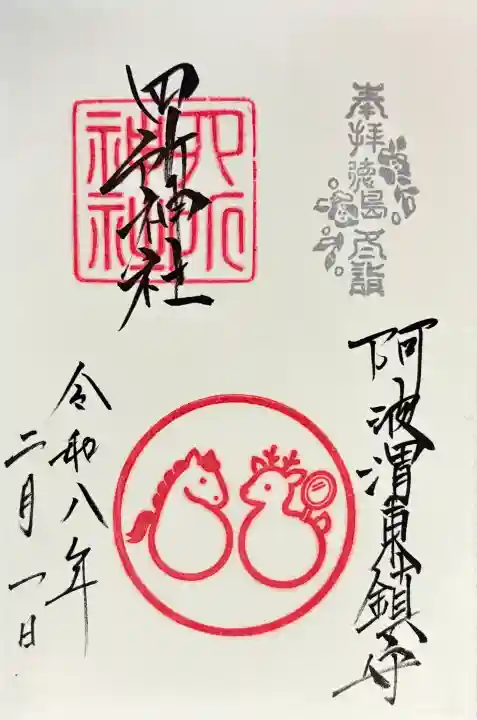 奉拝徳島冬詣
阿波渭東鎮守
四所神社
四所神社
令和八年
二月一日